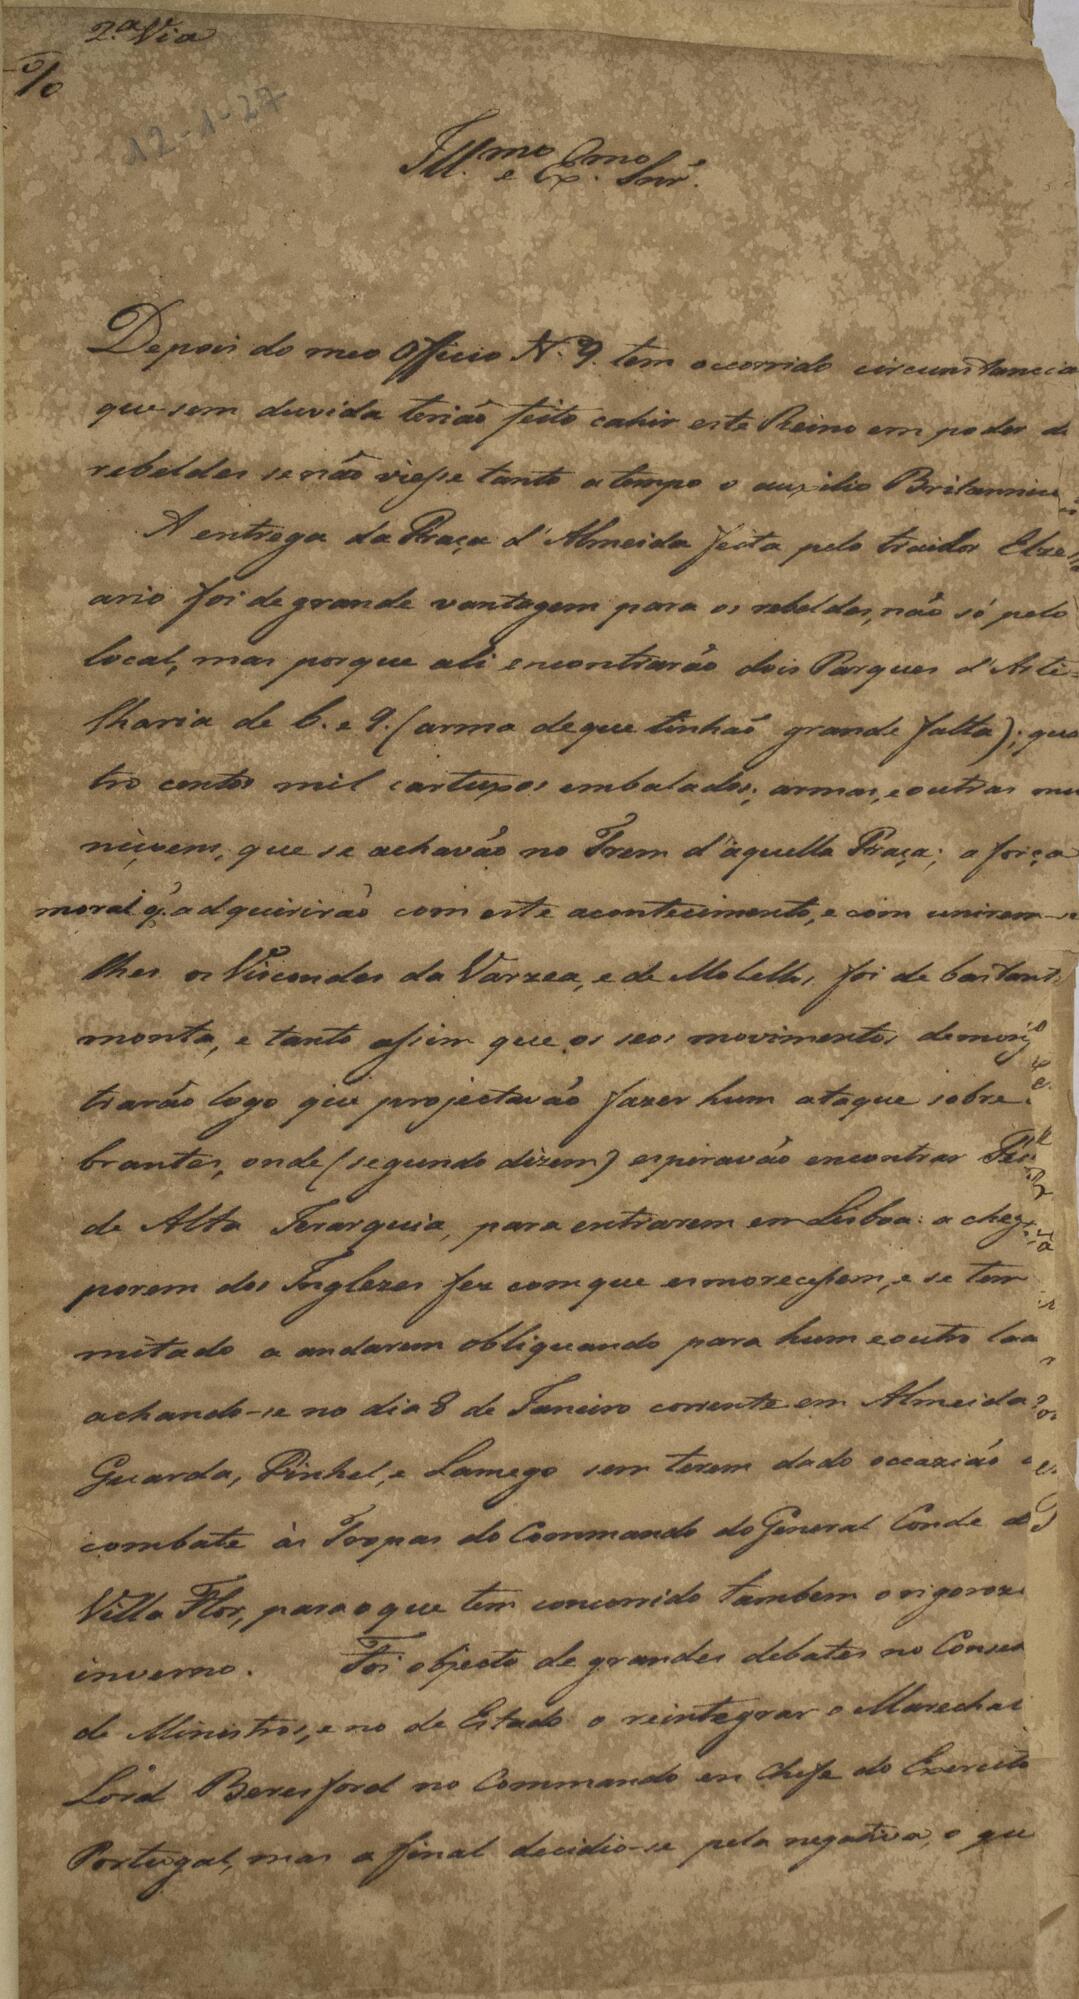 2.ª Via
%
12-1-27
Ill.mo e Ex.mo Snr.
Depois do meo Officio N.º 9. tem occorrido circunstancia
que sem duvida terião feito cahir este Reino em poder d
rebeldes se não viesse tanto a tempo o auxilio Britannic
A entrega da Praça d'Almeida feita pelo traidor
ario foi de grande vantagem para os rebeldes, não só pelo
local, mas porque ali encontrarão dois Parques d'Arti-
lharia de 6. e 9. (arma de que tinhão grande falta); qua
tro centos mil cartuxos embalados; armas, e outras mu
niçoens, que se achavão no Trem d'aquella Praça; a força
moral q. adquirirão com este acontecimento, e com unirem-se
lhes os Viscondes da Varzea, e de Molellos, foi de bastant
monta, e tanto assim que os seos movimentos demons
trarão logo que projectavão fazer hum ataque sobre
brantes, onde (segundo dizem) esperavão encontrar
de Alta Jerarquia, para entrarem em Lisboa: a cheg
porem dos Inglezes fez com que esmorecessem, e se tem
mitado a andarem obliquando para hum e outro
achando-se no dia 8 de Janeiro corrente em Almeida
Guarda, Pinhel, e Lamego sem terem dado occazião
combate às Tropas do Commando do General Conde d
Villa Flor, para o que tem concorrido tambem o rigoroz
inverno. Foi objecto de grandes debates no Conse
de Ministros, e no de Estado o reintegrar o Marechal
Lord Beresford no Commando em Chefe do Exercito
Portugal, mas a final decidio-se pela negativa, o que